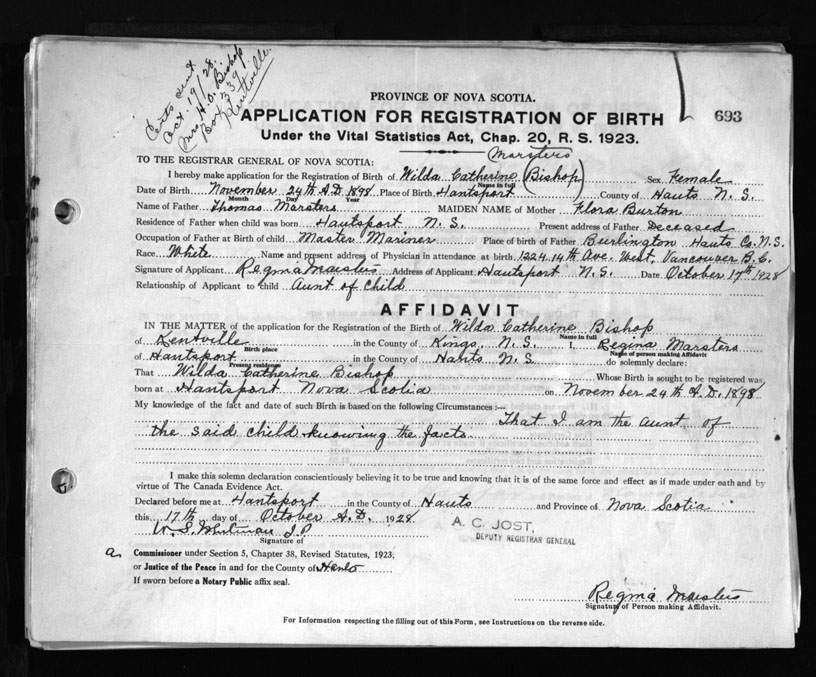 Certs sent
Oct. 19/28.
Mrs H.O. Bishop
Box 339
Kentville.
PROVINCE OF NOVA SCOTIA.
693
APPLICATION FOR REGISTRATION OF BIRTH
Under the Vital Statistics Act, Chap. 20, R. S. 1923.
Marsters
TO THE REGISTRAR GENERAL OF NOVA SCOTIA:
I hereby make application for the Registration of Birth of Wilda Catherine (Bishop) Sex Female
Name in full
Date of Birth November 24th A.D. 1898 Place of Birth Hantsport County of Hants N. S.
Month Day Year
Name of Father Thomas Marsters MAIDEN NAME of Mother Flora Burton
Residence of Father when child was born Hantsport N. S. Present address of Father Deceased
Occupation of Father at Birth of child Master Mariner Place of birth of Father Burlington Hants Co. N.S.
Race White Name and present address of Physician in attendance at birth. 1224 14th Ave. West, Vancouver B.C.
Signature of Applicant Regina Marsters Address of Applicant Hantsport N. S. Date October 17th 1928
Relationship of Applicant to child Aunt of Child
AFFIDAVIT
IN THE MATTER of the application for the Registration of the Birth of Wilda Catherine Bishop
Name in full
of Kentville in the County of Kings, N. S. I, Regina Marsters
Birth place Name of person making Affidavit
of Hantsport in the County of Hahts N. S. do solemnly declare:
Present residence
That Wilda Catherine Bishop Whose Birth is sought to be registered was
born at Hantsport Nova Scotia on November 24th A.D. 1898
My knowledge of the fact and date of such Birth is based on the following Circumstances :—
That I am the aunt of
the said child knowing the facts
I make this solemn declaration conscientiously believing it to be true and knowing that it is of the same force and effect as if made under oath and by
virtue of The Canada Evidence Act.
Declared before me at Hantsport in the County of Hants and Province of Nova Scotia
this 17th day of October A.D. 1928
W. S. Whitman J.P.
Signature of
A. C. JOST,
DEPUTY REGISTRAR GENERAL
a Commissioner under Section 5, Chapter 38, Revised Statutes, 1923;
or Justice of the Peace in and for the County of Hants
If sworn before a Notary Public affix seal.
Regina Marsters
Signature of Person making Affidavit.
For Information respecting the filling out of this Form, see Instructions on the reverse side.